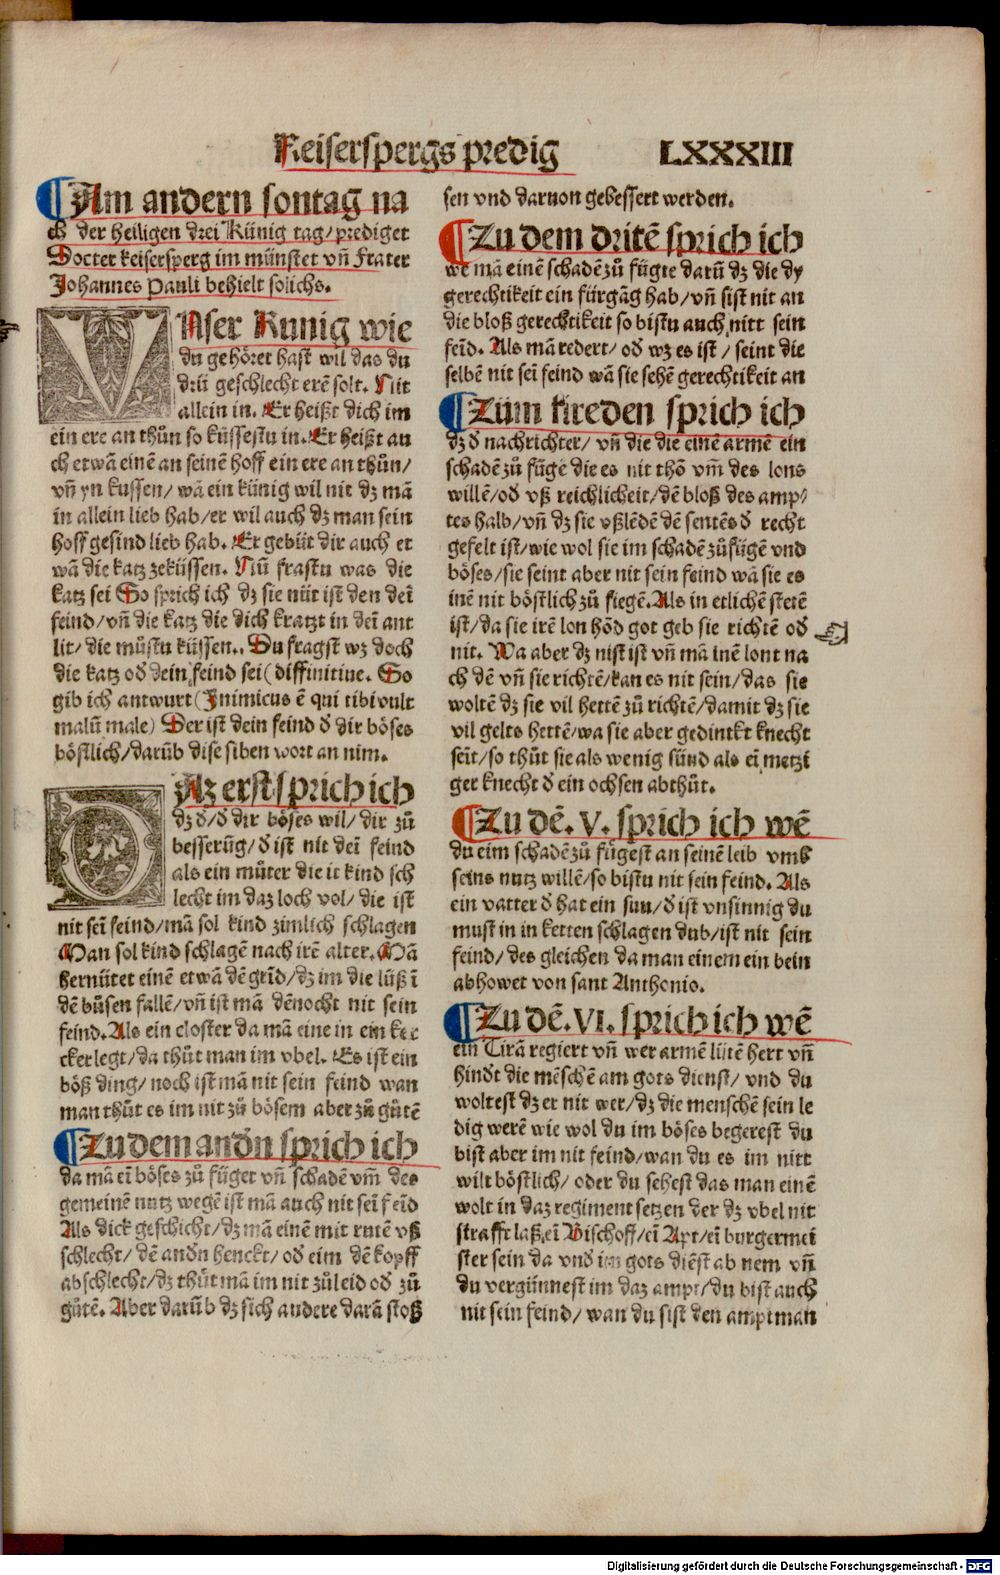 Keiserspergs predig LXXXIII
¶Am andern sontag na
ch der heiligen drei Künig tag/prediget
Docter keisersperg im münstet vñ Frater
Johannes Pauli behielt solichs.
VNser Kunig wie
du gehöret hast wil das du
drü geschlecht erē solt. Nit
allein in. Er heißt dich im
ein ere an thůn so küssestu in. Er heißt au
ch etwā einē an seinē hoff ein ere an thůn/
vñ yn kussen/ wā ein künig wil nit dz mā
in allein lieb hab/er wil auch dz man sein
hoff gesind lieb hab. Er gebüt dir auch et
wā die katz zeküssen. Nū frastu was die
katz sei So sprich ich dz sie nüt ist den deī
feind/vñ die katz die dich kratzt in deī ant
lit/die můstu küssen.. Du fragst wz doch
die katz od dein feind sei(diffinitiue. So
gib ich antwurt(Inimicus ē qui tibi vult
malū male) Der ist dein feind d̕ dir böses
böstlich/darūb dise siben wort an nim.
DAz erst sprich ich
dz d̕/d̕ dir böses wil/dir zů
besserūg/d̕ ist nit deī feind
als ein můter die it kind sch
lecht im daz loch vol/ die ist
nit seī feind/mā sol kind zimlich schlagen
Man sol kind schlagē nach irē alter. Mā
bernütet einē etwā dē grīd/dz im die lüß ī
dē bůsen fallē/vñ ist mā dēnocht nit sein
feind. Als ein closter da mā eine in ein kec
cker legt/da thůt man im vbel. Es ist ein
böß ding/ noch ist mā nit sein feind wan
man thůt es im nit zů bösem aber zů gůtē
¶Zu dem and̕n sprich ich
da mā eī böses zů fůget vñ schadē vm̄ des
gemeinē nutz wegē ist mā auch nit seī feīd
Als dick geschicht/dz mā einē mit rutē vß
schlecht/ dē and̕n henckt/ od̕ eim dē kopff
abschlecht/dz thůt mā im nit zů leid od̕ zů
gůtē. Aber darūb dz sich andere darā stoß
sen vnd daruon gebessert werden.
¶Zu dem dritē sprich ich
we mā einē schadē zů fůgte darū dz die dy
gerechtikeit ein fürgāg hab/vñ sist nit an
die bloß gerechtikeit so bistu auch nitt sein
feīd. Als mā redert/ od̕ wz es ist/ seint die
selbē nit seī feind wā sie sehē gerechtikeit an
¶Zům fireden sprich ich
dz d̕ nachrichter/ vñ die die einē armē ein
schadē zů fůgē die es nit thē vm̄ des lons
willē/od̕ vß reichlicheit/dē bloß des amp⸗
tes halb/vñ dz sie vßlēdē dē sentēs d̕ recht
gefelt ist/wie wol sie im schadē zůfůgē vnd
böses/sie seint aber nit sein feind wā sie es
inē nit böstlich zů fiegē. Als in etlichē stetē
ist/da sie irē lon hōd got geb sie richtē od̕
nit. Wa aber dz nist ist vñ mā inē lont na
ch dē vñ sie richtē/kan es nit sein/das sie
woltē dz sie vil hettē zů richtē/damit dz sie
vil gelts hettē/wa sie aber gedintkt knecht
seīt/so thůt sie als wenig sünd als eī metzi
ger knecht d̕ ein ochsen abthůt.
¶Zu dē. V. sprich ich wē
du eim schadē zů fůgest an seinē leib vmb
seins nutz willē/so bistu nit sein feind. Als
ein vatter d̕ hat ein sun/d̕ ist vnsinnig du
must in in ketten schlagen dub/ist nit sein
feind/ des gleichen da man einem ein bein
abhowet von sant Anthonio.
¶Zu dē. VI. sprich ich wē
ein Tirā regiert vñ wer armē lütē hert vñ
hind̕t die mēschē am gots dienst/ vnd du
woltest dz er nit wer/dz die menschē sein le
dig werē wie wol du im böses begerest du
bist aber im nit feind/wan du es im nitt
wilt böstlich/ oder du sehest das man einē
wolt in daz regiment setzen der dz vbel nit
strafft laß eī Bischoff/eī Apt/eī burgermeī
ster sein da vnd im gots diēst ab nem vñ
du vergünnest im daz ampt/du bist auch
nit sein feind/ wan du sist den amptman
Digitalisierung gefördert durch die Deutsche Forschungsgemeinschaft - DFG